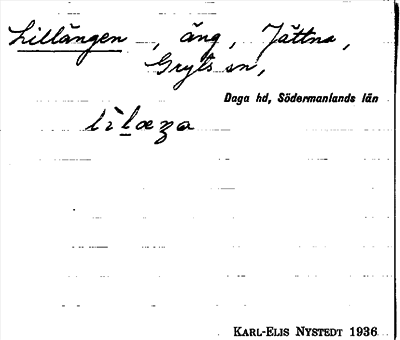 Lillängen, äng, Jättna,
Gryts sn,
Daga hd, Södermanlands län
KARL-ELIS NYSTEDT 1936